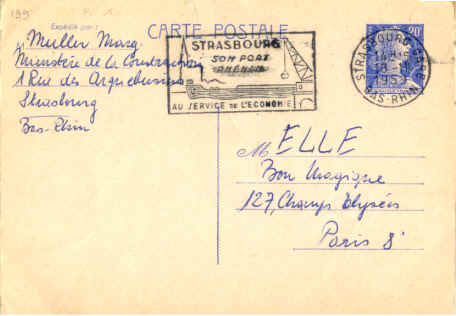 199
Expédié par :
CARTE POSTALE
Muller Marg.
Ministère de la Construction
1 Rue des Arquebusiers
Strasbourg
Bas-Rhin
STRASBOURG
SON PORT
RHÉNAN
AU SERVICE DE L'ECONOMIE
STRASBOURG GARE
1957
BAS-RHIN
20F
M ELLE
Bon Magique
127, Champs Elysées
Paris 8ᵉ